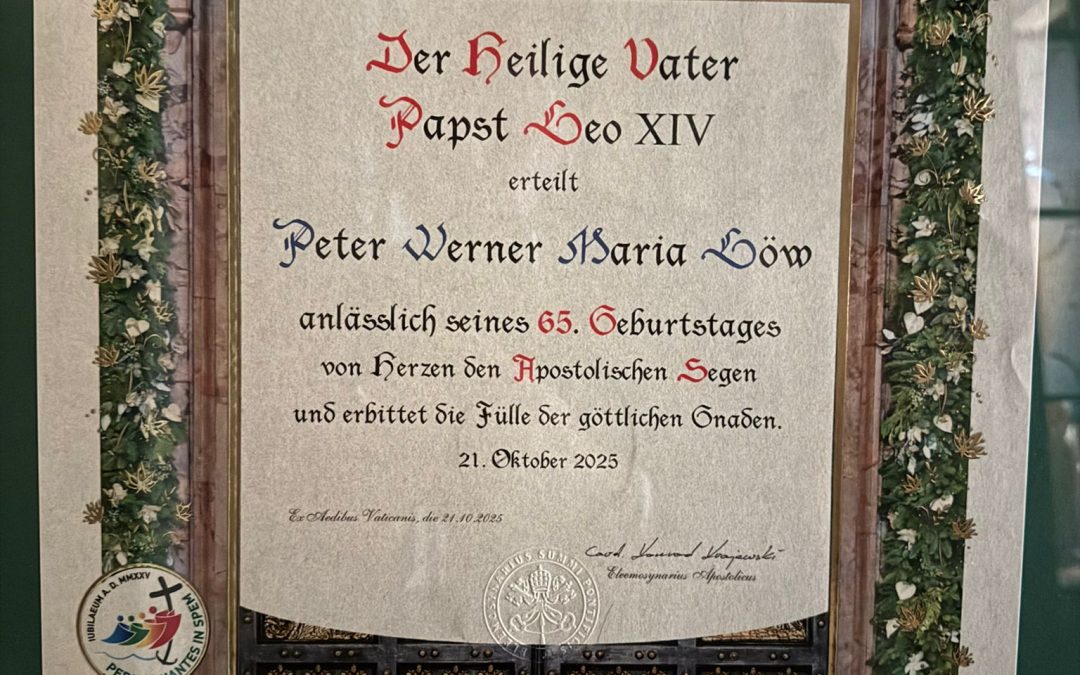 Der Heilige Vater
Papst Leo XIV
erteilt
Peter Werner Maria Löw
anlässlich seines 65. Geburtstages
von Herzen den Apostolischen Segen
und erbittet die Fülle der göttlichen Gnaden.
21. Oktober 2025
Ex Aedibus Vaticanis, die 21.10.2025
Card. Konrad Krajewski
Eleemosynarius Apostolicus
SUMMI PONTIFICIS
IUBILAEUM A. D. MMXXV
IN SPEM